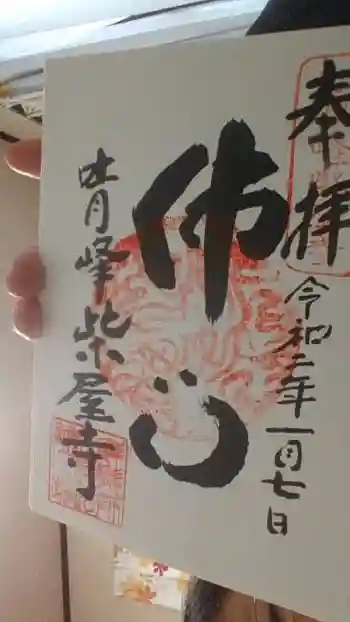 奉拝
令和二年一月七日
佛心
青峰柴屋寺